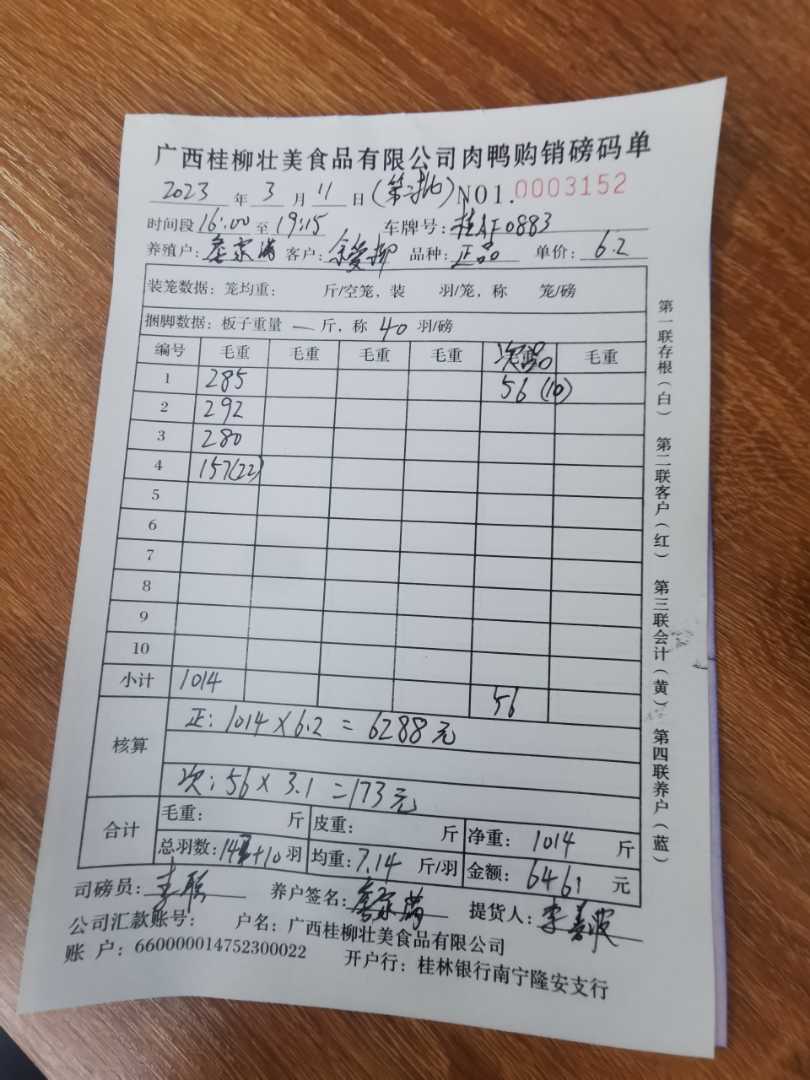 广西桂柳壮美食品有限公司肉鸭购销磅码单
2023 年 3 月 11 日 (第二批) NO1.0003152
时间段 16:00 至 19:15 车牌号: 桂AF0883
养殖户: 客户: 品种: 正品 单价: 6.2
装笼数据: 笼均重: 斤/空笼, 装 羽/笼, 称 笼/磅
捆脚数据: 板子重量 — 斤, 称 40 羽/磅
编号 毛重 毛重 毛重 毛重 次品 毛重
1 285 56 (10)
2 292
3 280
4 157(22)
5
6
7
8
9
10
小计 1014 56
核算
正: 1014 × 6.2 = 6288元
次: 56 × 3.1 = 173元
合计
毛重: 斤 皮重: 斤 净重: 1014 斤
总羽数: +10 羽 均重: 7.14 斤/羽 金额: 6461 元
司磅员: 养户签名: 提货人:
公司汇款账号: 户名: 广西桂柳壮美食品有限公司
账 户: 660000014752300022 开户行: 桂林银行南宁隆安支行
第一联存根(白) 第二联客户(红) 第三联会计(黄) 第四联养户(蓝)